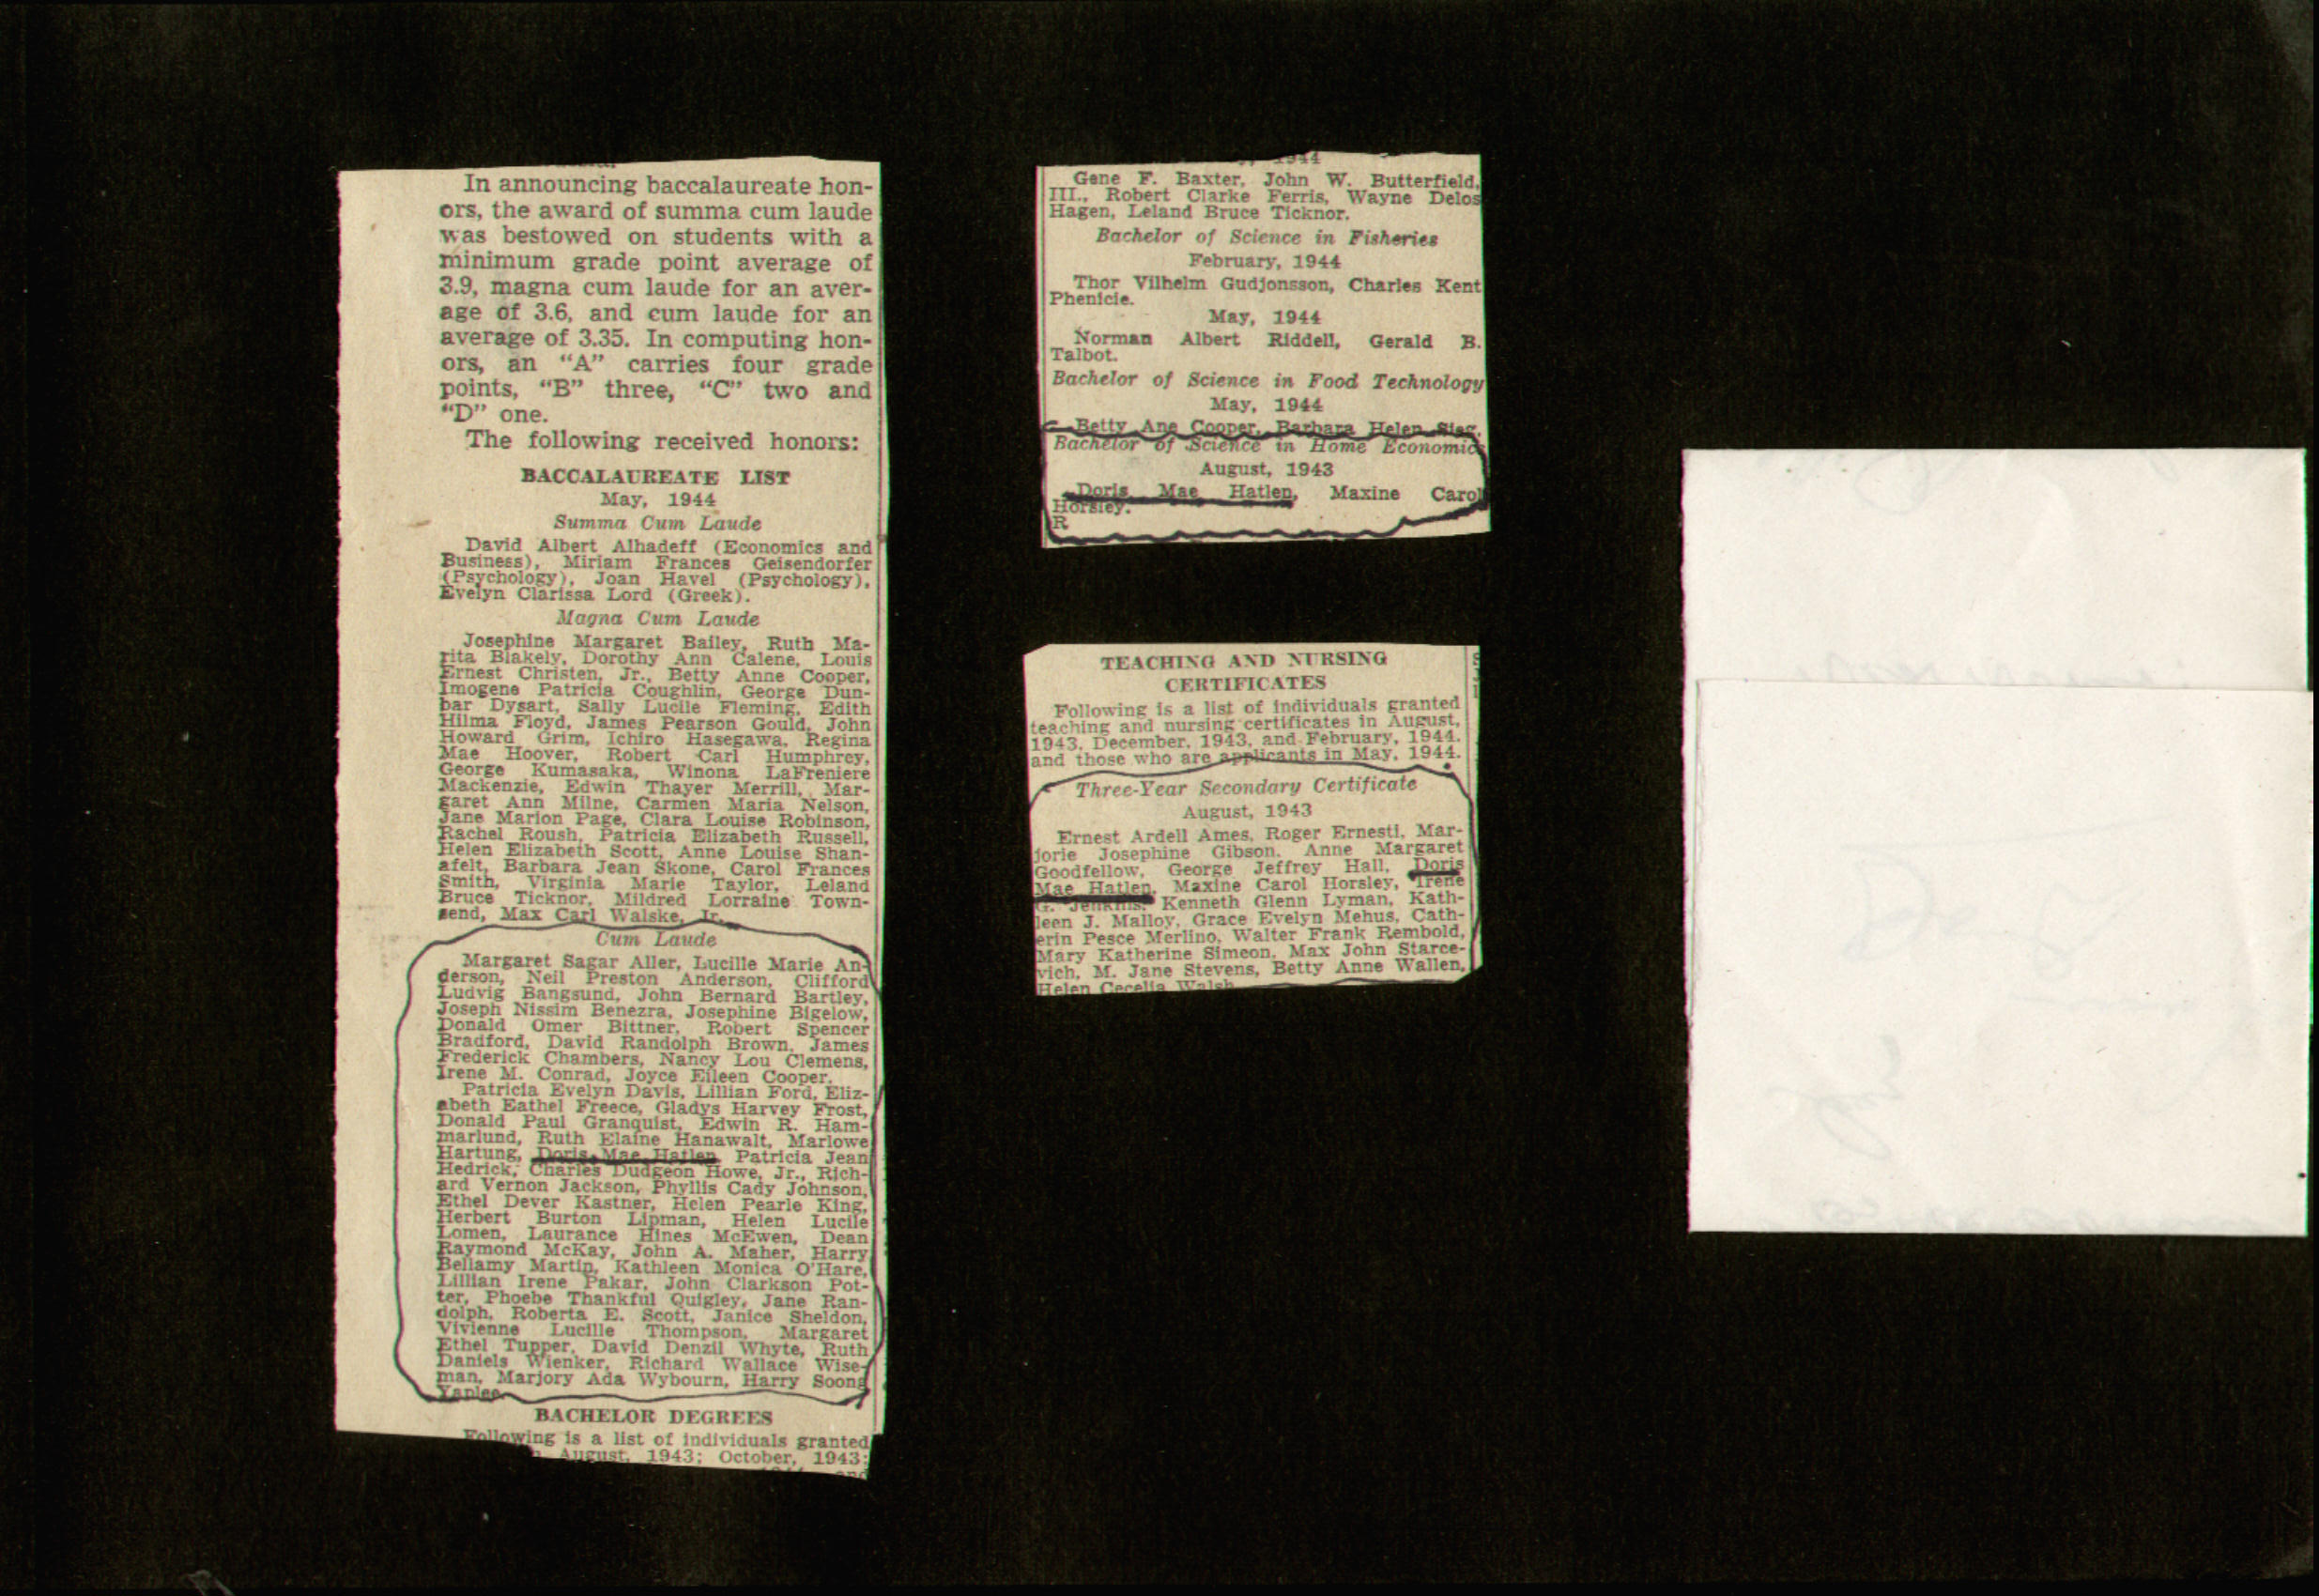 In announcing baccalaureate hon-
ors, the award of summa cum laude
was bestowed on students with a
minimum grade point average of
3.9, magna cum laude for an aver-
age of 3.6, and cum laude for an
average of 3.35. In computing hon-
ors, an “A” carries four grade
points, “B” three, “C” two and
“D” one.
The following received honors:
BACCALAUREATE LIST
May, 1944
Summa Cum Laude
David Albert Alhadeff (Economics and
Business), Miriam Frances Geisendorfer
(Psychology), Joan Havel (Psychology),
Evelyn Clarissa Lord (Greek).
Magna Cum Laude
Josephine Margaret Bailey, Ruth Ma-
rita Blakely, Dorothy Ann Calene, Louis
Ernest Christen, Jr., Betty Anne Cooper,
Imogene Patricia Coughlin, George Dun-
bar Dysart, Sally Lucile Fleming, Edith
Hilma Floyd, James Pearson Gould, John
Howard Grim, Ichiro Hasegawa, Regina
Mae Hoover, Robert Carl Humphrey,
George Kumasaka, Winona LaFreniere
Mackenzie, Edwin Thayer Merrill, Mar-
garet Ann Milne, Carmen Maria Nelson,
Jane Marion Page, Clara Louise Robinson,
Rachel Roush, Patricia Elizabeth Russell,
Helen Elizabeth Scott, Anne Louise Shan-
afelt, Barbara Jean Skone, Carol Frances
Smith, Virginia Marie Taylor, Leland
Bruce Ticknor, Mildred Lorraine Town-
send, Max Carl Walske, Jr.
Cum Laude
Margaret Sagar Aller, Lucille Marie An-
derson, Neil Preston Anderson, Clifford
Ludvig Bangsund, John Bernard Bartley,
Joseph Nissim Benezra, Josephine Bigelow,
Donald Omer Bittner, Robert Spencer
Bradford, David Randolph Brown, James
Frederick Chambers, Nancy Lou Clemens,
Irene M. Conrad, Joyce Eileen Cooper.
Patricia Evelyn Davis, Lillian Ford, Eliz-
abeth Eathel Freece, Gladys Harvey Frost,
Donald Paul Granquist, Edwin R. Ham-
marlund, Ruth Elaine Hanawalt, Marlowe
Hartung, Doris Mae Hatlen, Patricia Jean
Hedrick, Charles Dudgeon Howe, Jr., Rich-
ard Vernon Jackson, Phyllis Cady Johnson,
Ethel Dever Kastner, Helen Pearle King,
Herbert Burton Lipman, Helen Lucile
Lomen, Laurance Hines McEwen, Dean
Raymond McKay, John A. Maher, Harry
Bellamy Martin, Kathleen Monica O'Hare,
Lillian Irene Pakar, John Clarkson Pot-
ter, Phoebe Thankful Quigley, Jane Ran-
dolph, Roberta E. Scott, Janice Sheldon,
Vivienne Lucille Thompson, Margaret
Ethel Tupper, David Denzil Whyte, Ruth
Daniels Wienker, Richard Wallace Wise-
man, Marjory Ada Wybourn, Harry Soong
Yaplee.
BACHELOR DEGREES
Following is a list of individuals granted
August, 1943; October, 1943;
and
1944
Gene F. Baxter, John W. Butterfield,
III., Robert Clarke Ferris, Wayne Delos
Hagen, Leland Bruce Ticknor.
Bachelor of Science in Fisheries
February, 1944
Thor Vilhelm Gudjonsson, Charles Kent
Phenicie.
May, 1944
Norman Albert Riddell, Gerald B.
Talbot.
Bachelor of Science in Food Technology
May, 1944
Betty Ane Cooper, Barbara Helen Sieg.
Bachelor of Science in Home Economics
August, 1943
Doris Mae Hatlen, Maxine Carol
Horsley.
R
TEACHING AND NURSING
CERTIFICATES
Following is a list of individuals granted
teaching and nursing certificates in August,
1943, December, 1943, and February, 1944.
and those who are applicants in May, 1944.
Three-Year Secondary Certificate
August, 1943
Ernest Ardell Ames, Roger Ernesti, Mar-
jorie Josephine Gibson, Anne Margaret
Goodfellow, George Jeffrey Hall, Doris
Mae Hatlen, Maxine Carol Horsley, Irene
G. Jenkins, Kenneth Glenn Lyman, Kath-
leen J. Malloy, Grace Evelyn Mehus, Cath-
erin Pesce Merlino, Walter Frank Rembold,
Mary Katherine Simeon, Max John Starce-
vich, M. Jane Stevens, Betty Anne Wallen,
Helen Cecelia Walsh